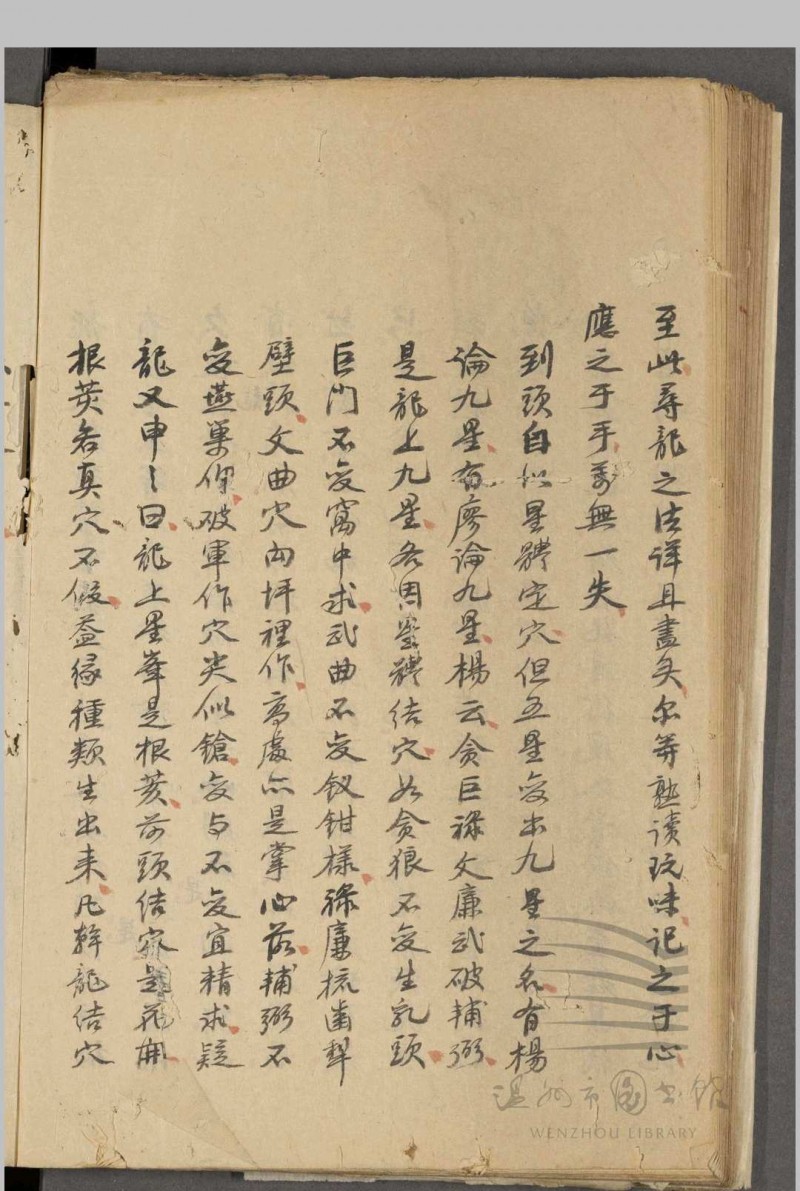 至此尋龍之法詳且盡矣尔等熟讀玩味記之于心
應之于手萬無一失
到頭自似星體定穴但五星变出九星之名有楊
論九星有廖論九星楊云貪巨祿文廉武破輔弼
是龍上九星各因星體結穴如貪狼不变生乳頭
巨門不变窩中求武曲不变釵鉗樣祿廉梳齒犁
壁頭文曲穴向坪裡作高處亦是掌心落輔弼不
变燕巢仰破軍作穴尖似鎗变与不变宜精求疑
龍又申之曰龍上星峯是根荄前頭結穴是花開
根荄若真穴不假蓋緣種類生出来凡幹龍結穴
温州市图书馆
WENZHOU LIBRARY